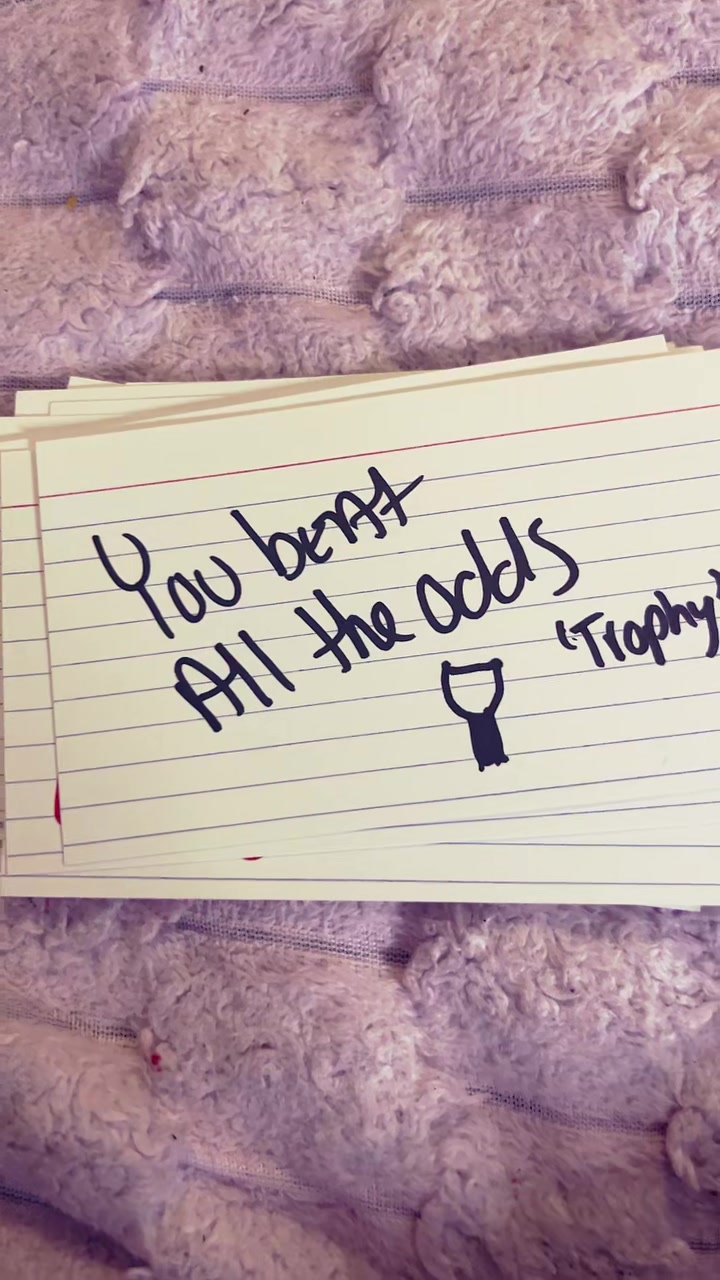 You beat
All the odds
'Trophy'